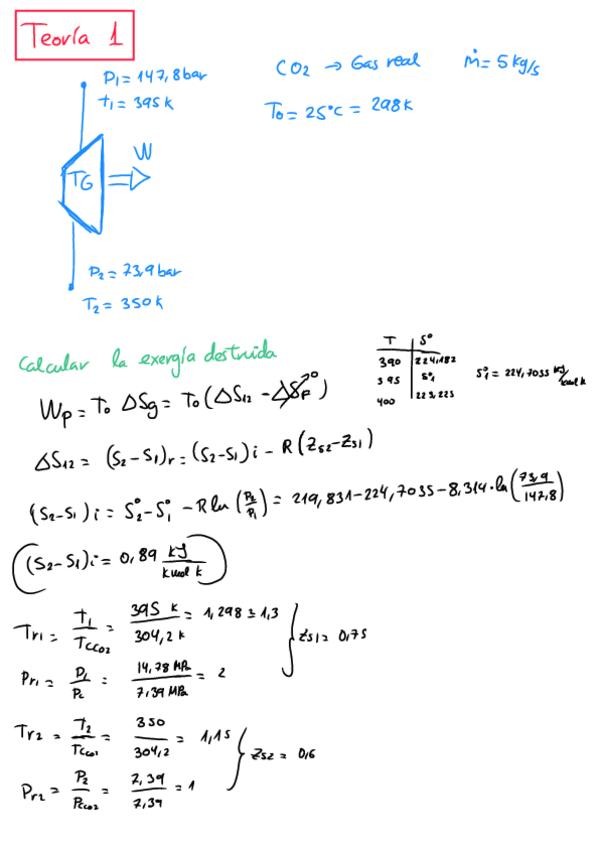 Teoría 1
P₁ = 147,8 bar
t₁ = 395 k
CO₂ → Gas real
ṁ = 5 kg/s
T₀ = 25°C = 298 k
TG
W
P₂ = 73,9 bar
T₂ = 350 k
Calcular la exergía destruida
T | S°
390 | 224,182
395 | S°₁
400 | 225,225
S°₁ = 224,7035 kJ/kmol k
Wp = T₀ ΔSg = T₀ (ΔS₁₂ - ΔSF→0)
ΔS₁₂ = (S₂-S₁)r = (S₂-S₁)i - R(Zs₂-Zs₁)
(S₂-S₁)i = S°₂ - S°₁ - R ln (P₂/P₁) = 219,831-224,7035-8,314·ln(73,9/147,8)
(S₂-S₁)i = 0,89 kJ/kmol k
Tr₁ = t₁/Tcco₂ = 395 k/304,2 k = 1,298 ≅ 1,3
Zs₁ = 0,75
Pr₁ = P₁/Pc = 14,78 MPa/7,39 MPa = 2
Tr₂ = T₂/Tcco₂ = 350/304,2 = 1,15
Zs₂ = 0,6
Pr₂ = P₂/Pcco₂ = 7,39/7,39 = 1